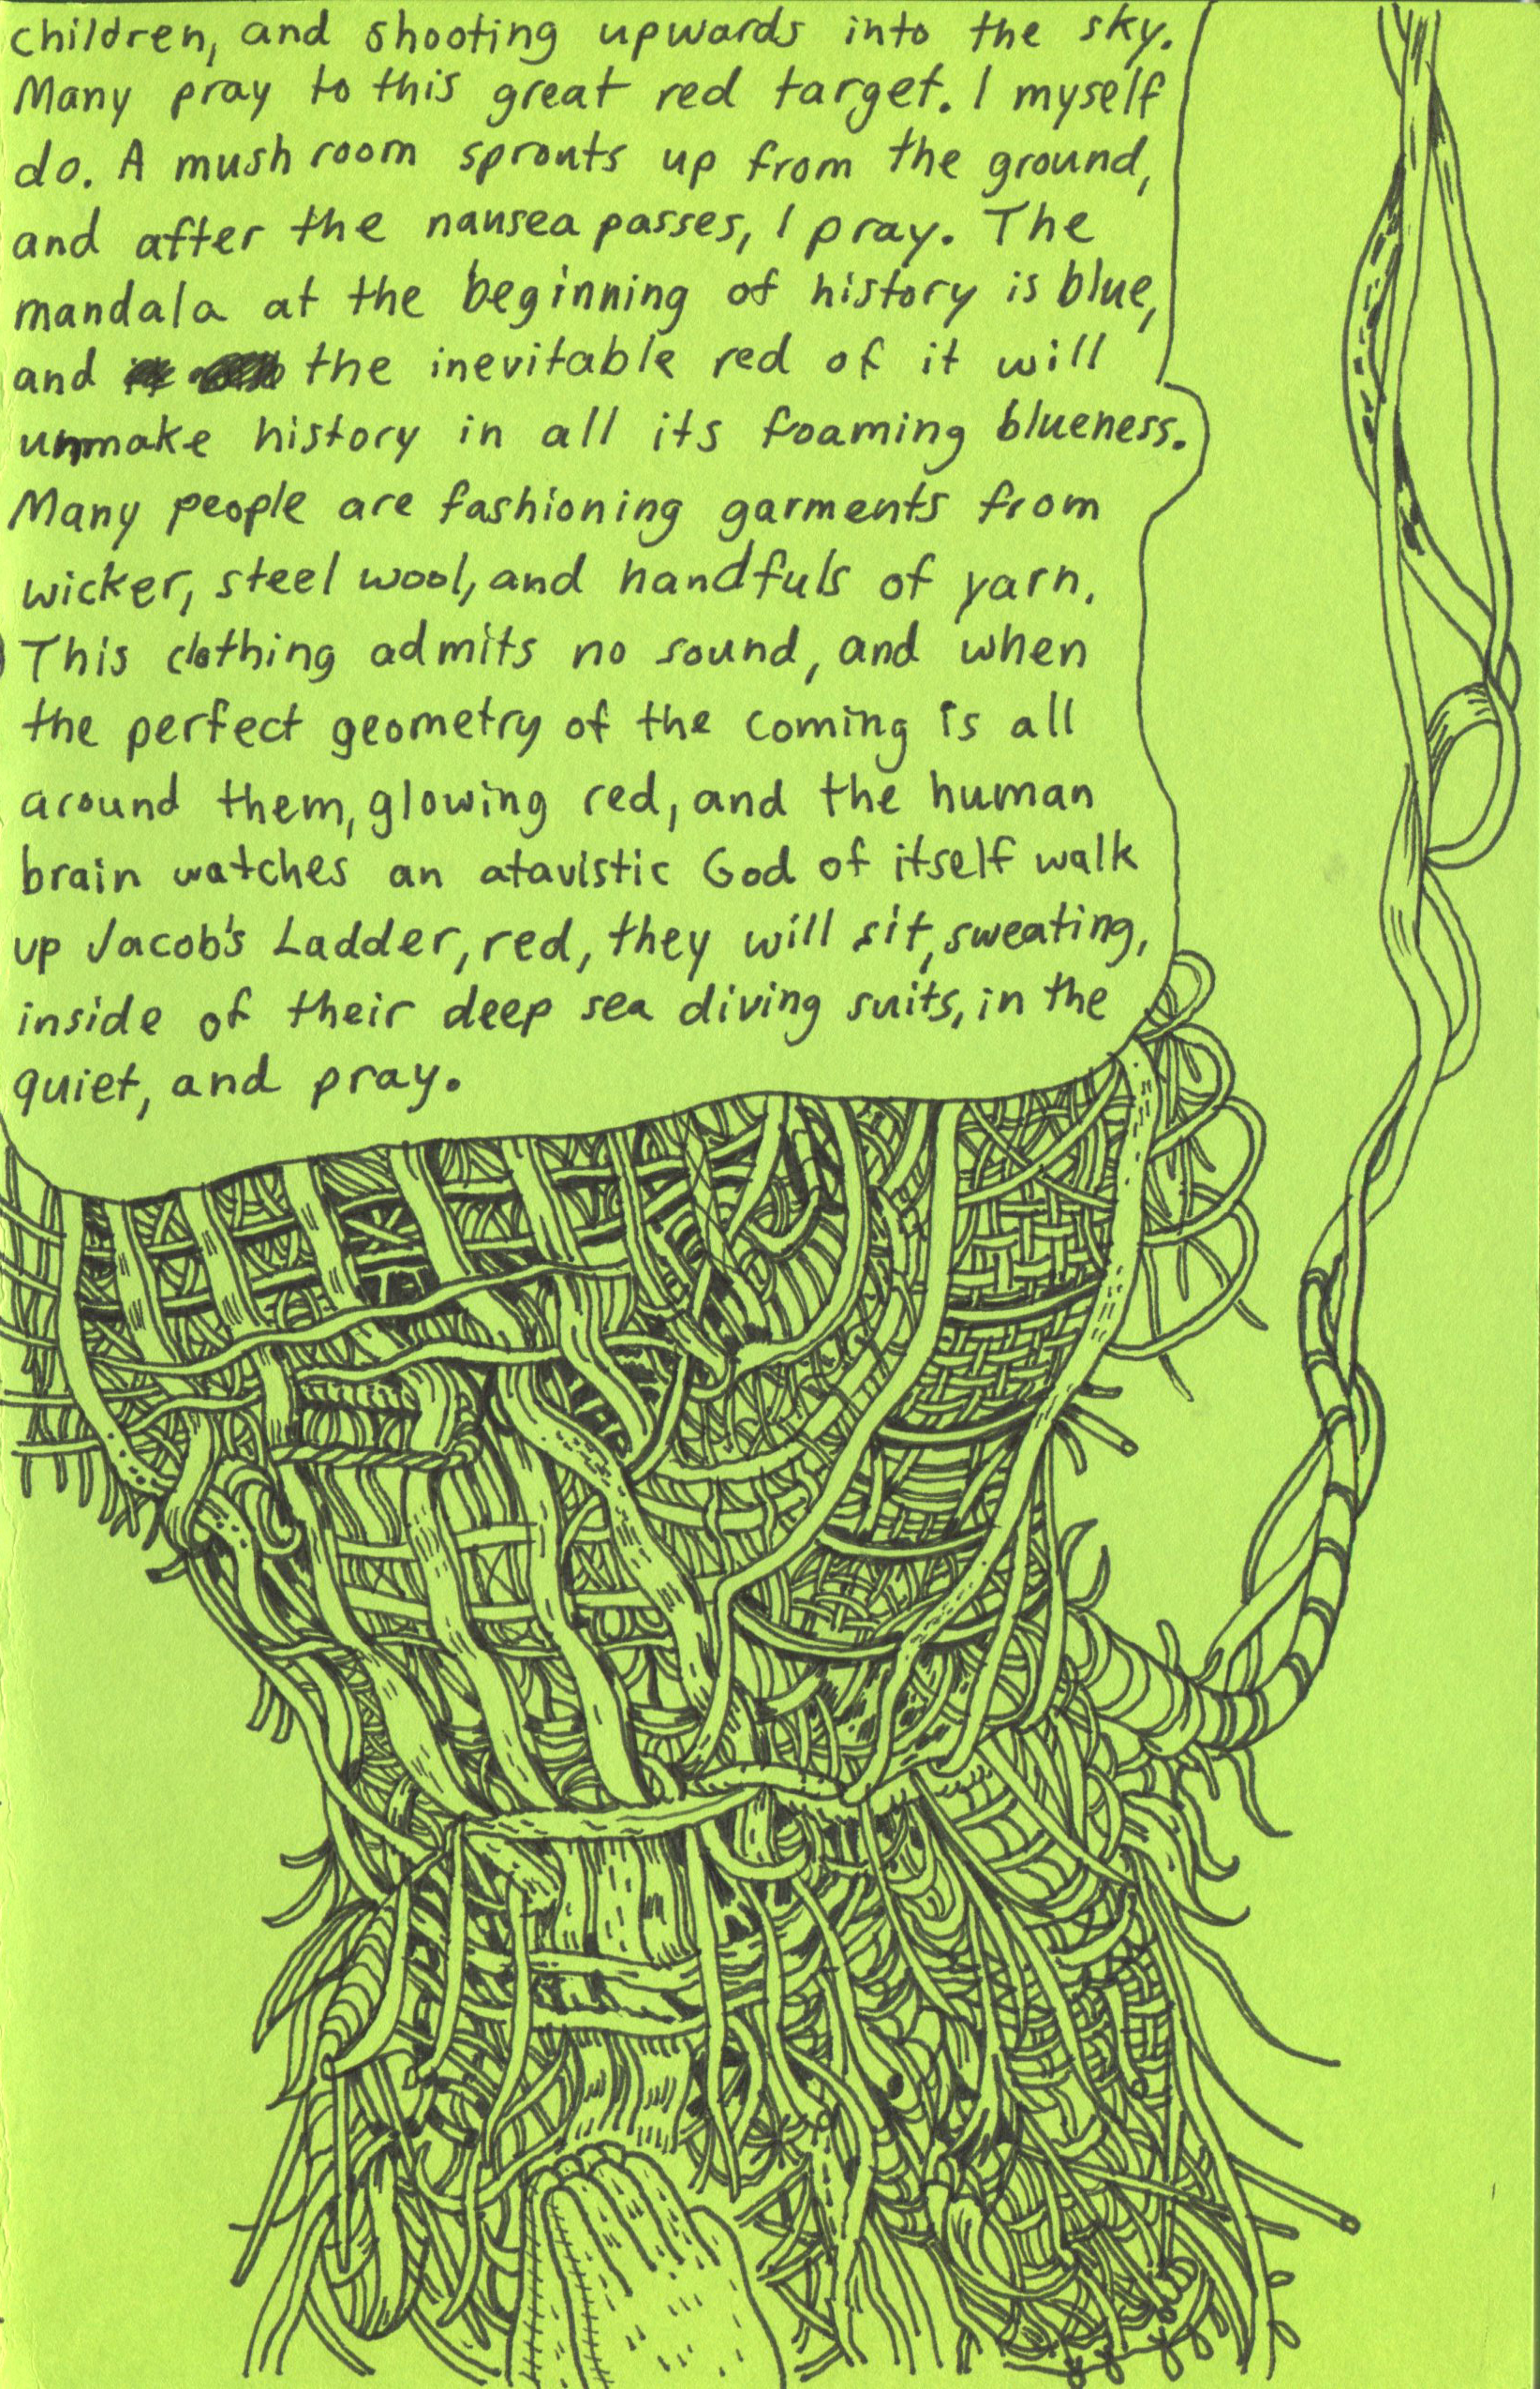 children, and shooting upwards into the sky.
Many pray to this great red target. I myself
do. A mushroom sprouts up from the ground,
and after the nausea passes, I pray. The
mandala at the beginning of history is blue,
and the inevitable red of it will
unmake history in all its foaming blueness.
Many people are fashioning garments from
wicker, steel wool, and handfuls of yarn.
This clothing admits no sound, and when
the perfect geometry of the coming is all
around them, glowing red, and the human
brain watches an atavistic God of itself walk
up Jacob's Ladder, red, they will sit, sweating,
inside of their deep sea diving suits, in the
quiet, and pray.